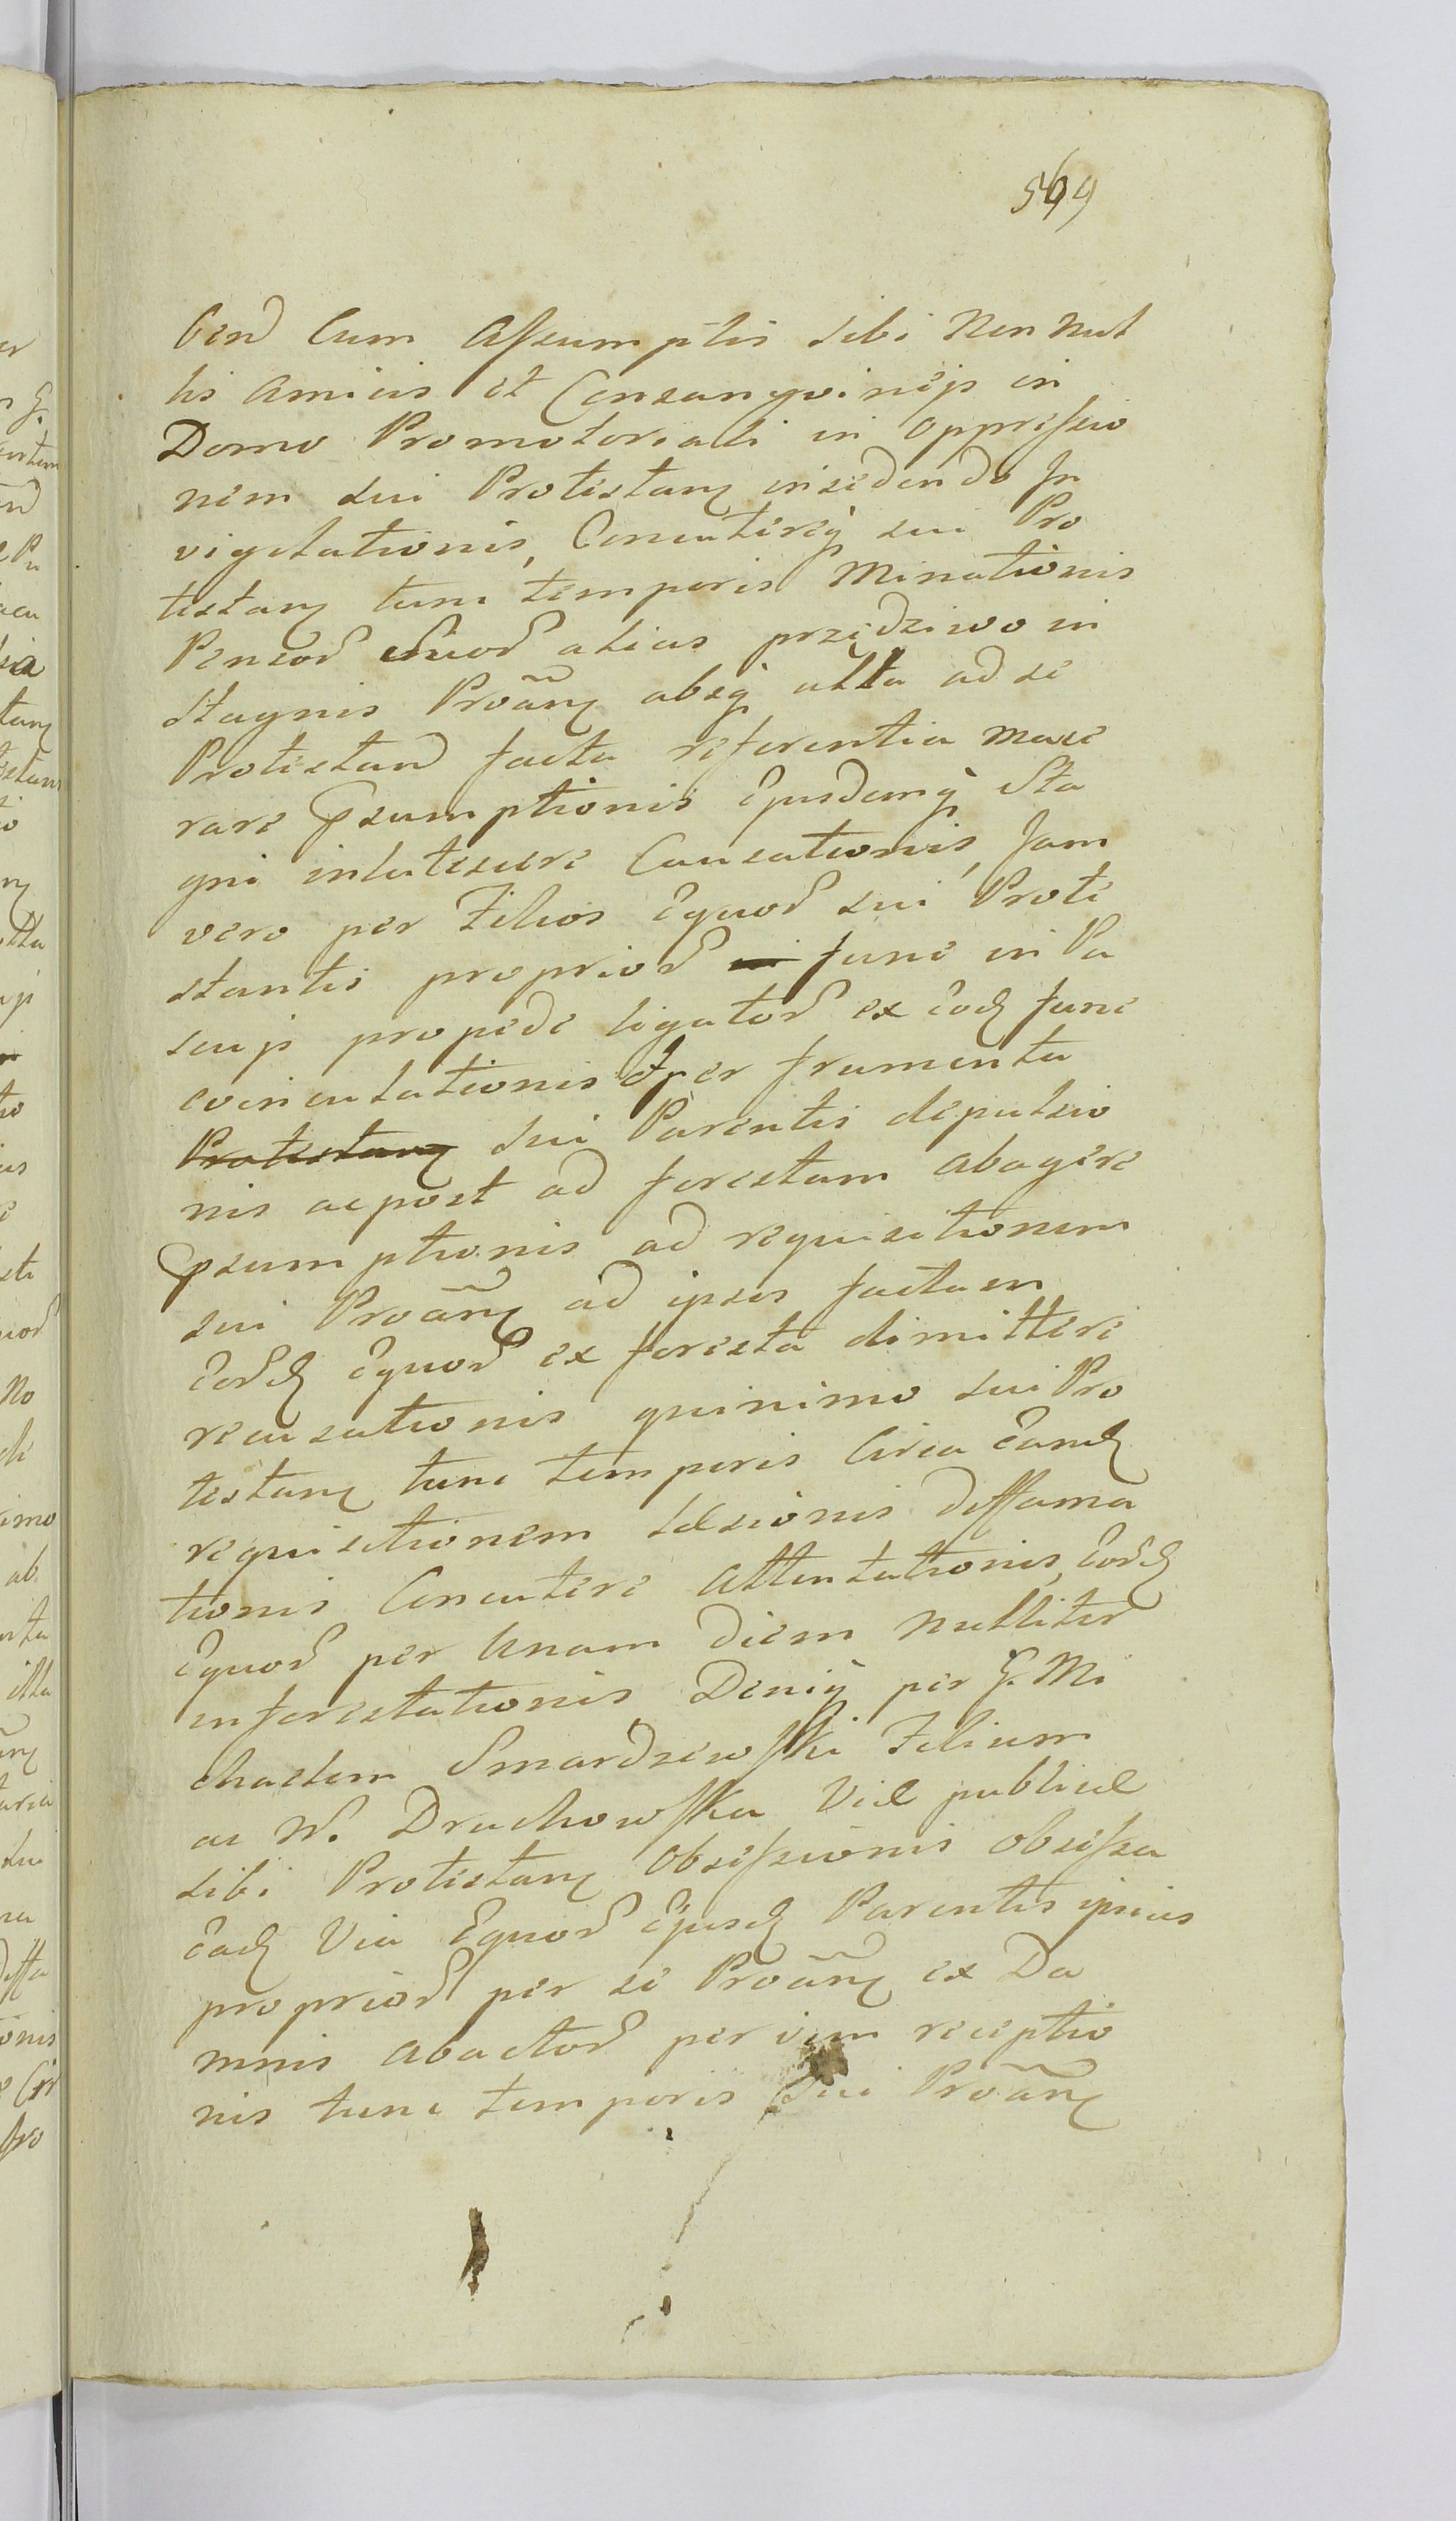 569
bend Cum Assumptis sibi Non nul
lis Amicis et Consangvineis in
Domo Promotoriali in oppressio
nem sui Protestanz insedendo In
vigilationis, Concuterèq sui Pro
testanz tunc temporis Minationis
Pensor alias przędziwo in
Stagnis Proãnz absq ulla ad se
Protestand facta referentia mace
rare Psumptionis Ejusdemq Sta
gni inlutescere Causationis, Jam
vero per Filios Equor sui Prote
stantis proprior fune in Pa
scuis pro pede ligator ex eod fune
evinculationis et per frumenta
Protestanz sui Parentis depulsio
nis ac post ad forestam abagere
Psumptionis ad requisitionem
sui Proãnz ad ipsos factam
Eord Equor ex foresta dimittere
recusationis quinimo sui Pro
testanz tunc temporis Circa Eand
requisitionem Læsionis diffama
tionis Concutere Attentationis, Eord
Equor per Unam diem Nulliter
inforestationis Deniq per G. Mi
chaelem Smardzewski Filium
ac W. Druchowska Viæ publicæ
sibi Protestanz Obsessionis obsessa
Ead Via Equor Ejusd Parentis ipsius
proprior per se Proãnz ex Da
mnis abactor per vim receptio
nis tunc temporis Sui Proãnz